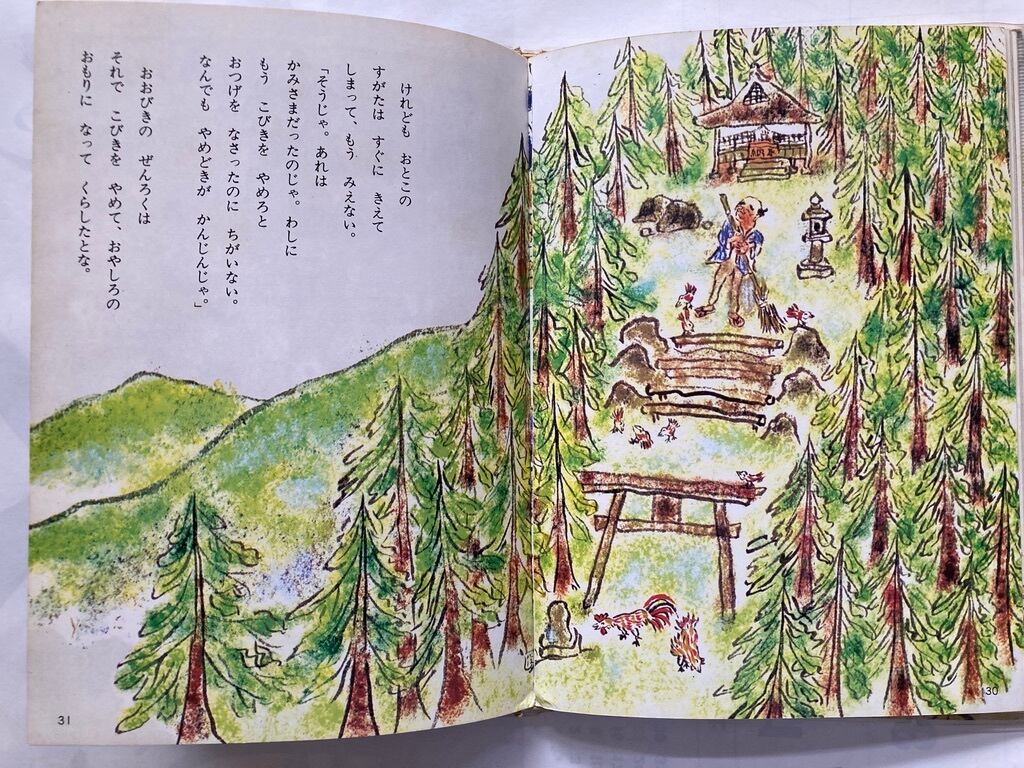 けれども おとこの
すがたは すぐに きえて
しまって、もう みえない。
「そうじゃ。あれは
かみさまだったのじゃ。わしに
もう こびきを やめろと
おつげを なさったのに ちがいない。
なんでも やめどきが かんじんじゃ。」
おおびきの ぜんろくは
それで こびきを やめて、おやしろの
おもりに なって くらしたとな。
30
31